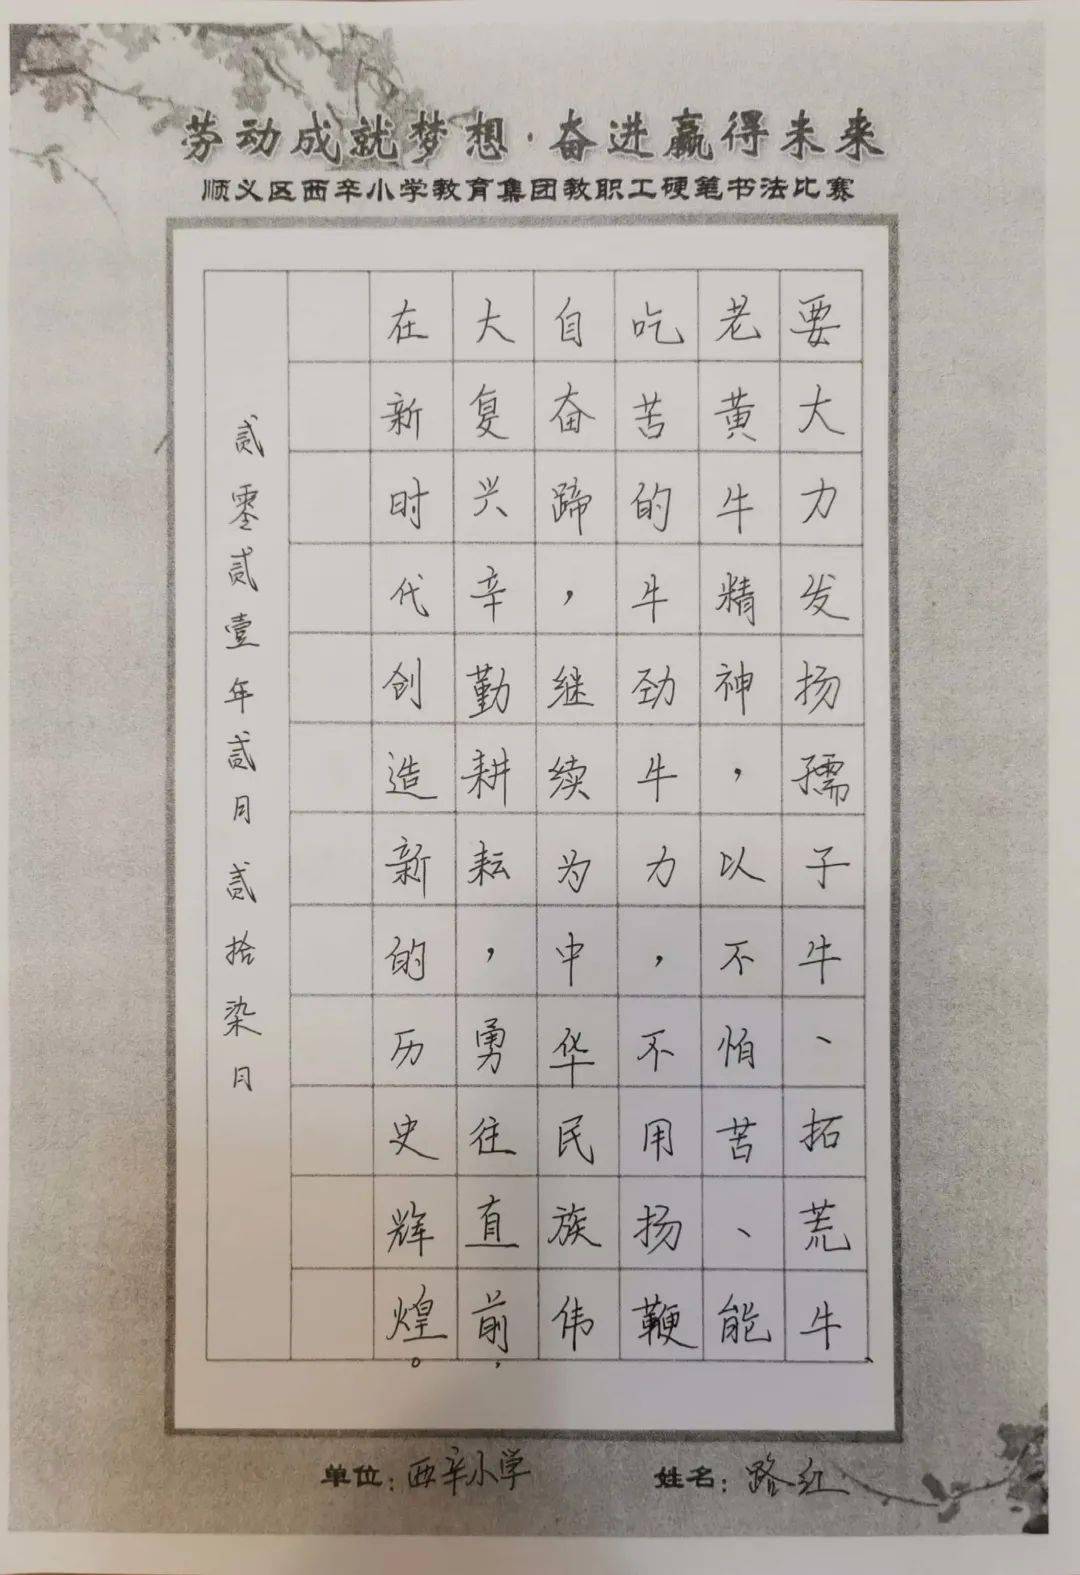 劳动成就梦想·奋进赢得未来
顺义区西辛小学教育集团教职工硬笔书法比赛
要大力发扬孺子牛、拓荒牛、
老黄牛精神，以不怕苦、能
吃苦的牛劲牛力，不用扬鞭
自奋蹄，继续为中华民族伟
大复兴辛勤耕耘，勇往直前，
在新时代创造新的历史辉煌。
贰零贰壹年贰月贰拾柒月
单位：西辛小学
姓名：路红